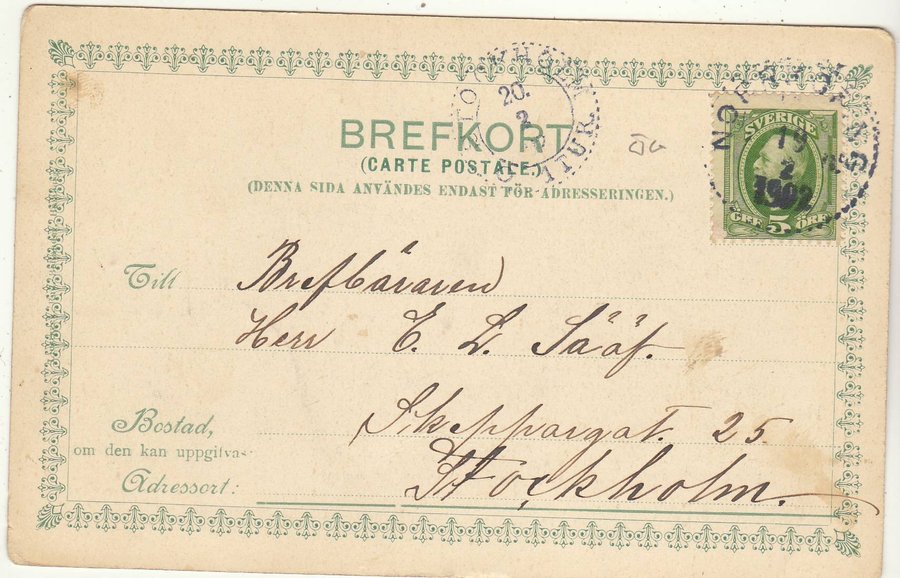 BREFKORT
(CARTE POSTALE.)
(DENNA SIDA ANVÄNDES ENDAST FÖR ADRESSERINGEN.)
STOCKHOLM
20.
2
TUR
NORRKÖPING
19
2
1902
SVERIGE
5 ÖRE
Till Brefbäraren
Herr E. L. Sääf.
Bostad,
om den kan uppgifvas
Skeppargat. 25.
Adressort: Stockholm.